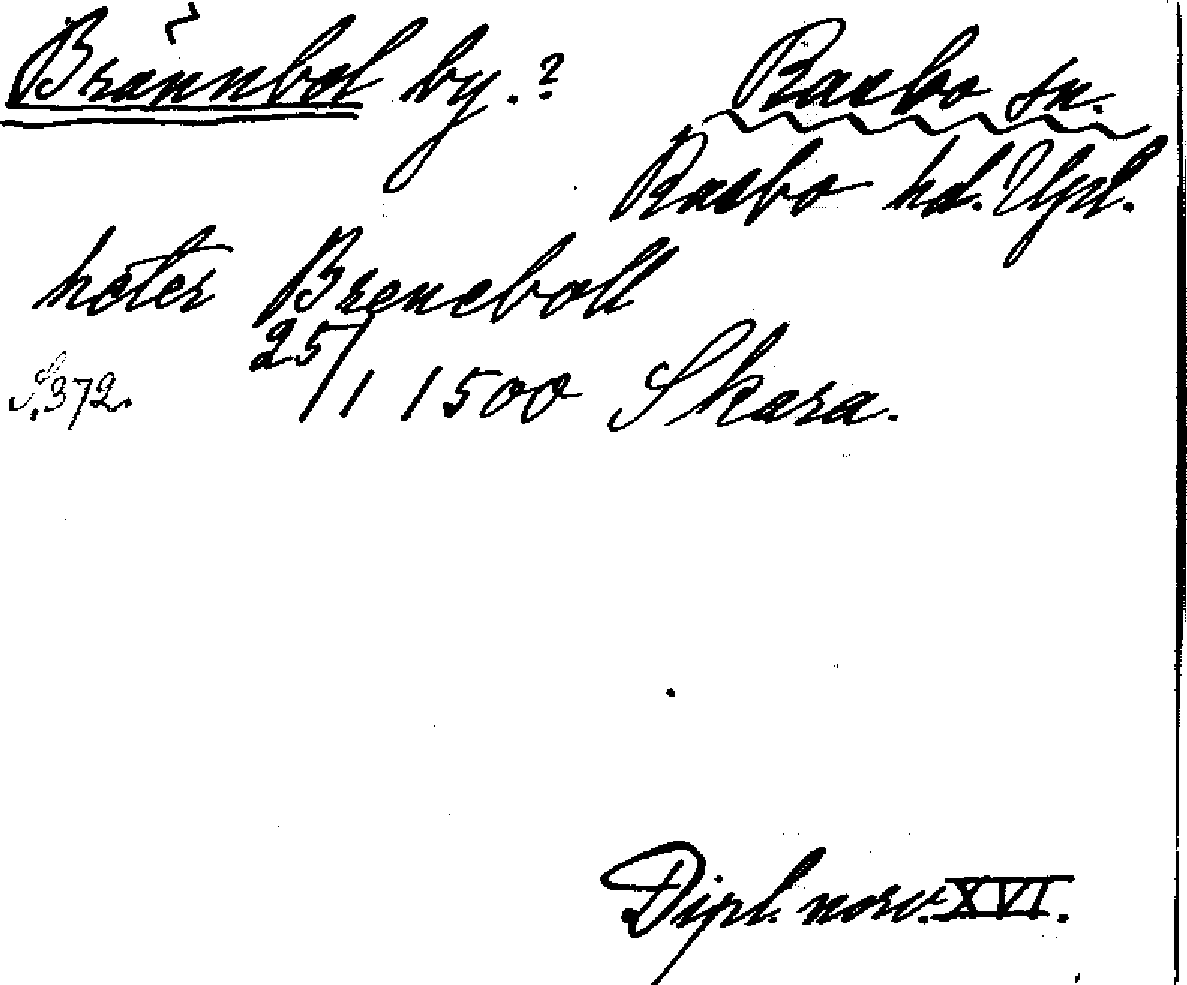 Brännbol by.? Rasbo sn.
Rasbo hd. Upl.
heter Breneboll
S. 372. 25/1 1500 Skara.
Dipl. norv. XVI.